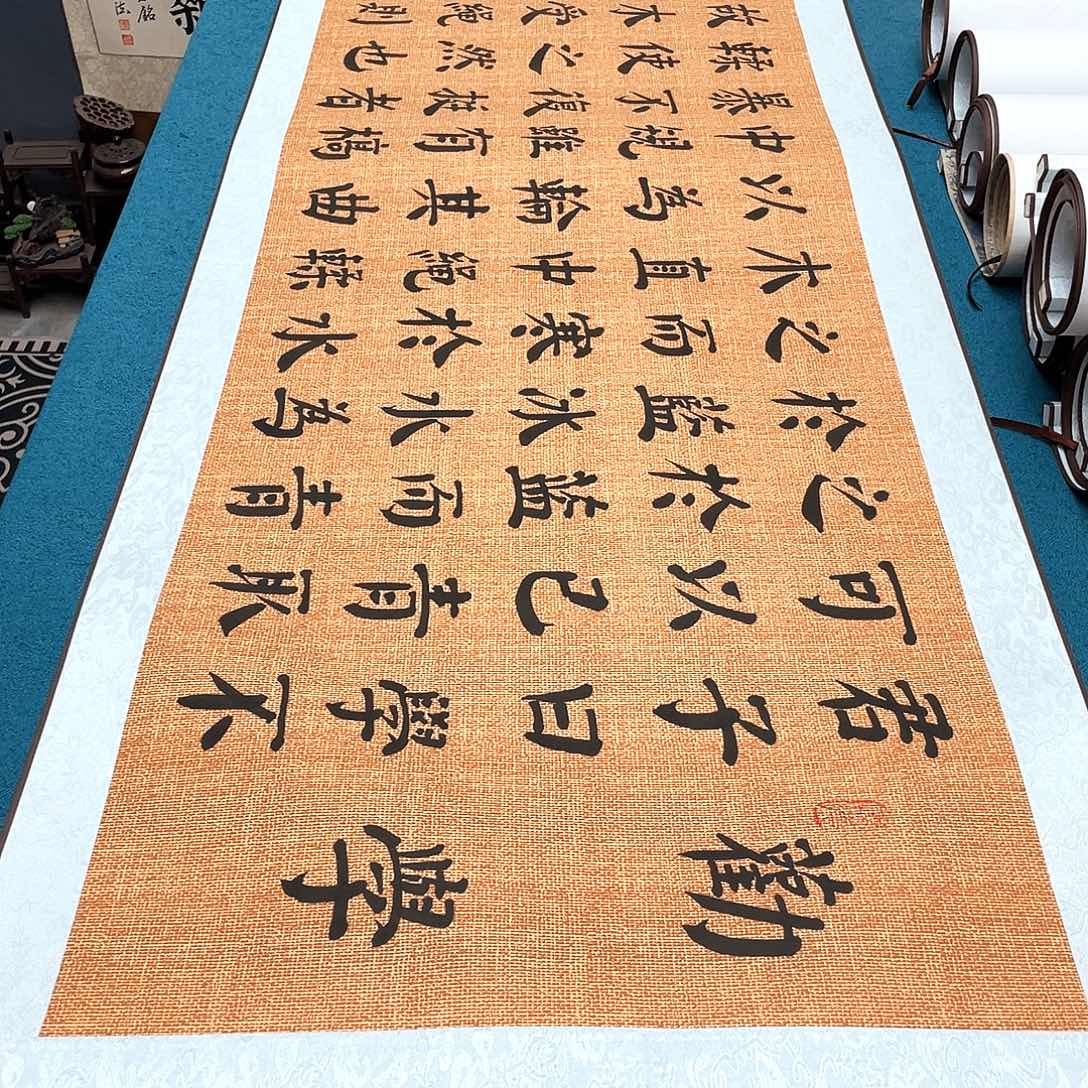 勸學
君子曰學不
可以已青取
之於藍而青
於藍冰水為
之而寒於水
木直中繩輮
以為輪其曲
中規雖有槁
暴不復挺者
輮使之然也
故木受繩則